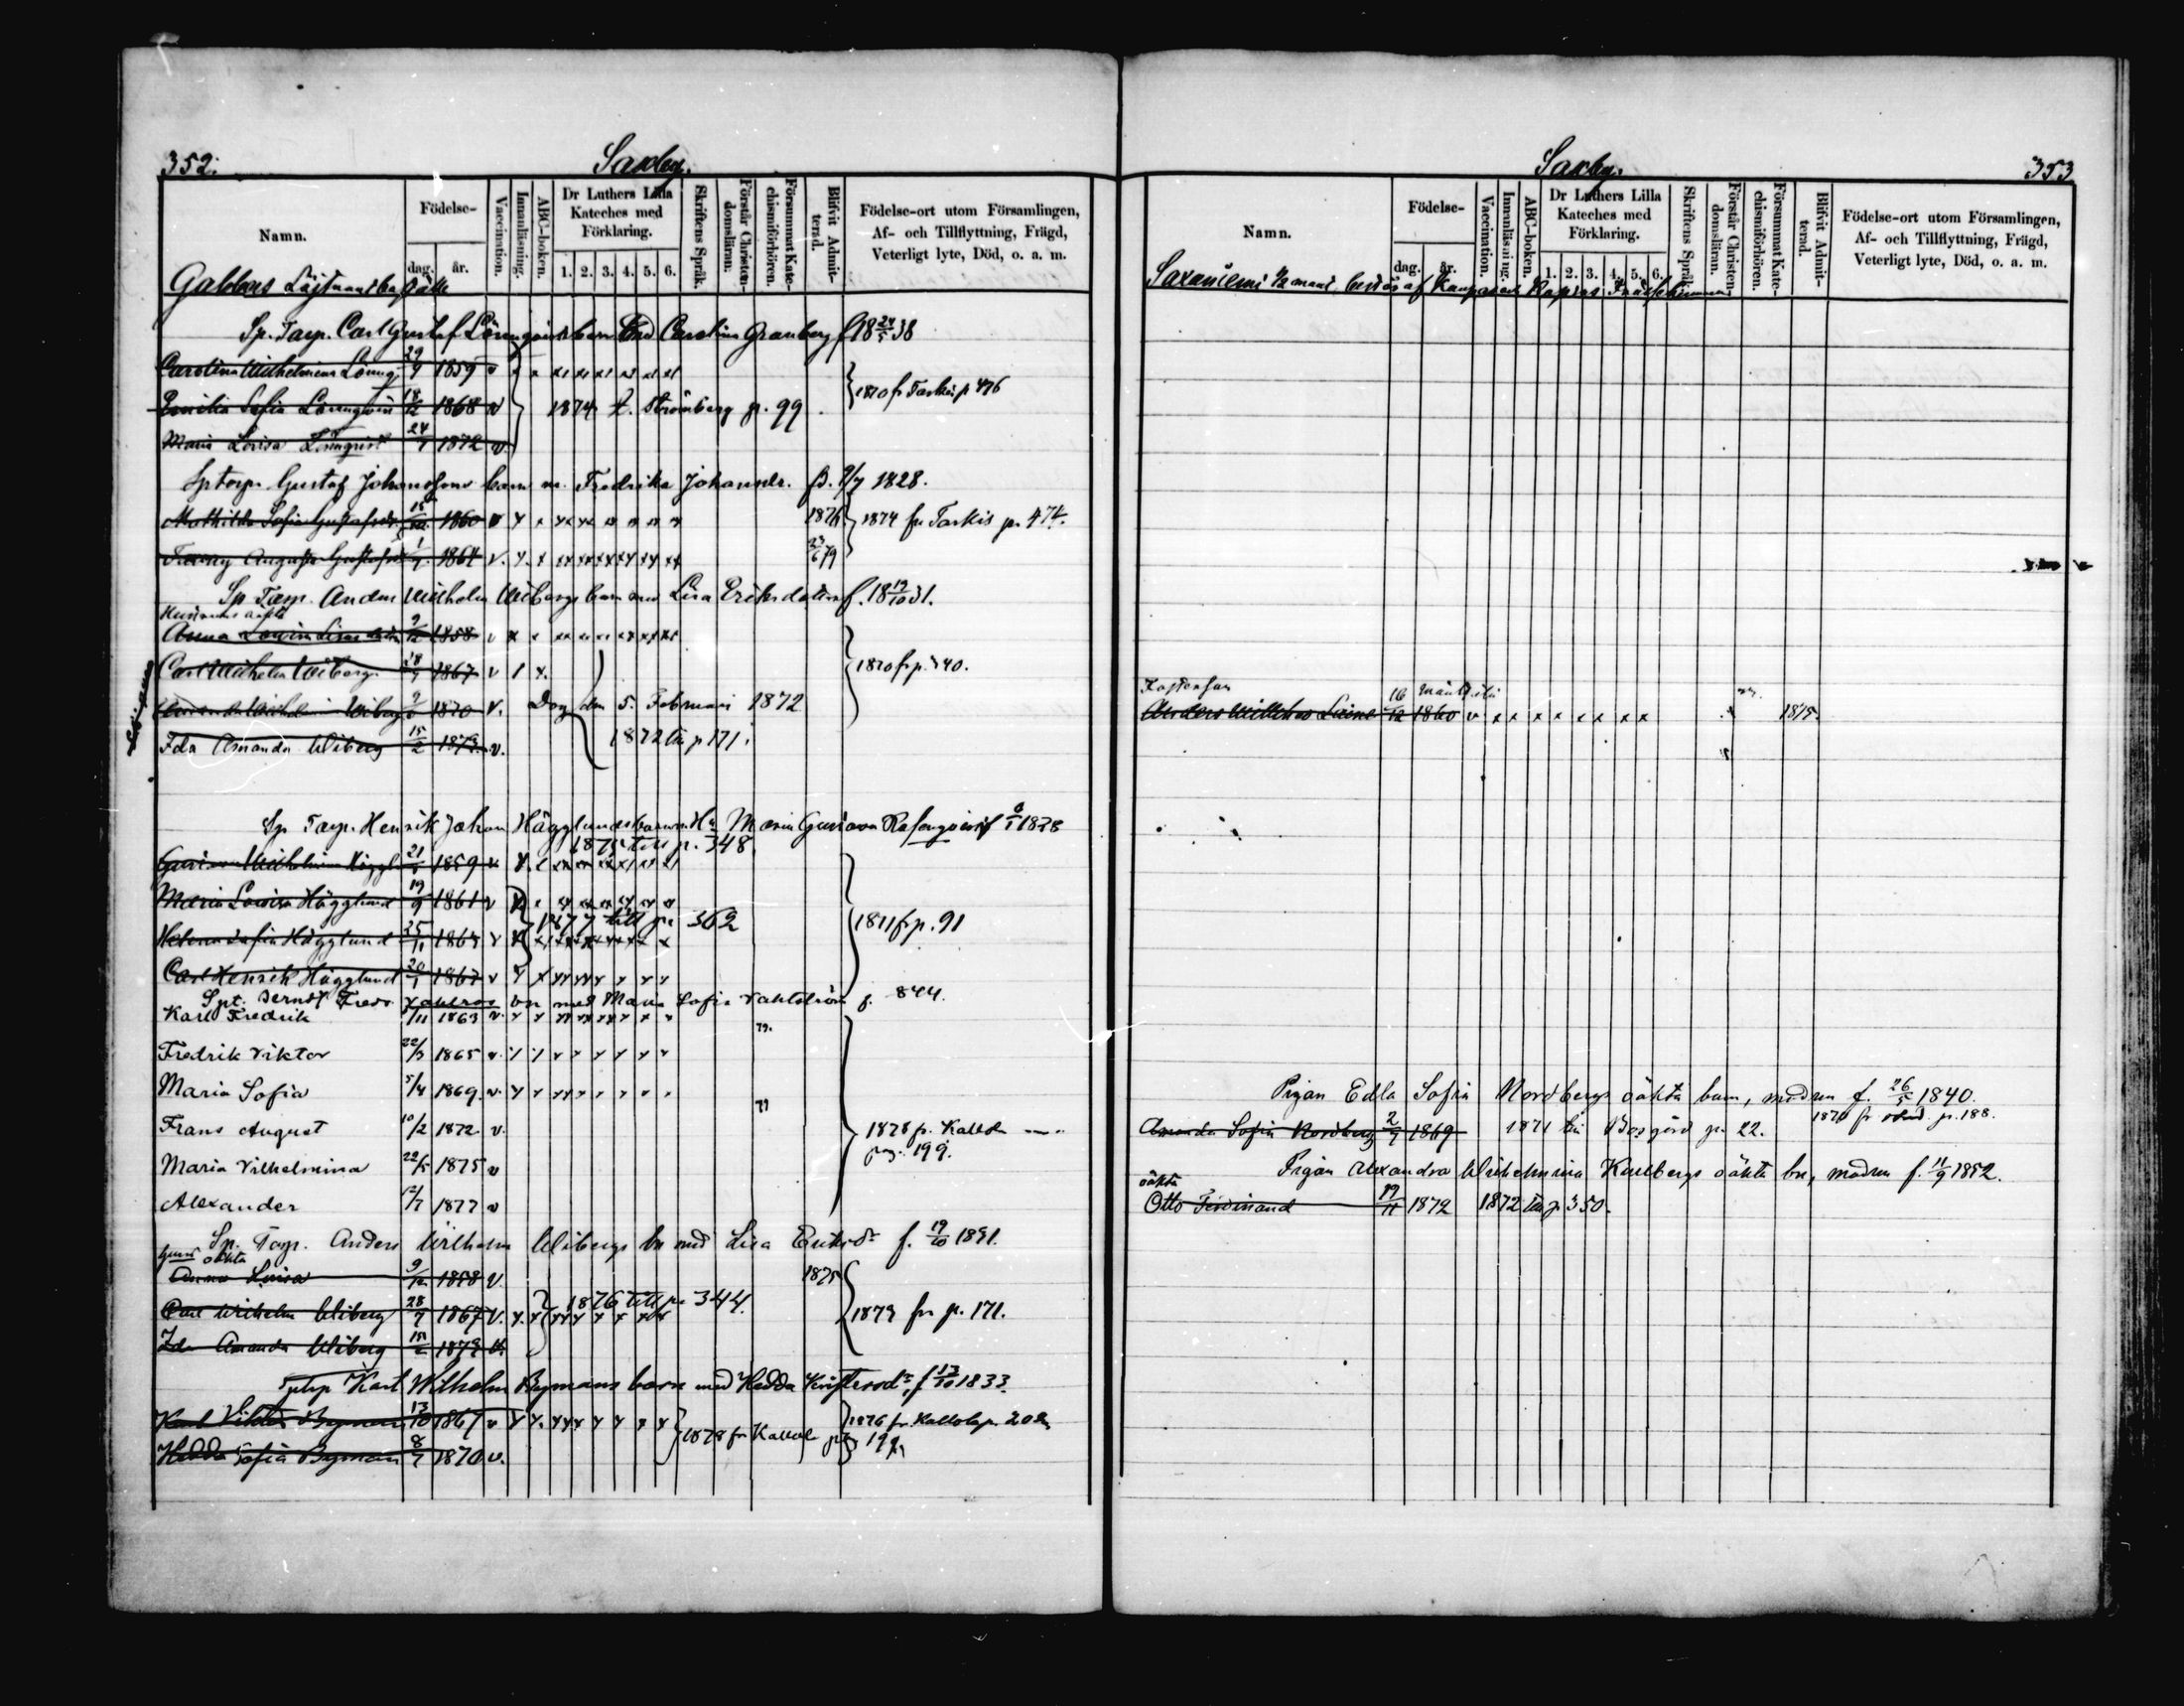 352.
Saxby.
Namn.
Födelse-
dag. år.
Vaccination.
Innanläsning.
ABC-boken.
Dr Luthers Lilla Kateches med Förklaring.
1. 2. 3. 4. 5. 6.
Skriftens Språk.
Förstår Christendomsläran.
Försummat Katechismiförhören.
Blifvit Admitterad.
Födelse-ort utom Församlingen, Af- och Tillflyttning, Frägd, Veterligt lyte, Död, o. a. m.
Gabbas
Sp. Torp. Carl Gustaf Lönnqvists barn Carolina Granberg f. 18 24/5 38
Carolina Wilhelmina Lönnq. 29/9 1859 v
1870 fr Tarkis p 476
Emilia Sofia Lönnqvist 18/12 1868 v 1874 t. Strömberg p. 99
Maria Lovisa Lönnqvist 24/7 1872 v.
Sptorp. Gustaf Johanssons barn m. Fredrika Johansdr. 9/7 1828.
Mathilda Sofia Gustafsdr 15/12 1860 v 1876 1874 fr Tarkis p. 474.
Fanny Augusta Gustafsd 1864 v. 79
Sp Torp. Anders Wilhelm Wibergs barn med Lisa Eriksdotter f. 18 19/10 31.
Hustruns oäkta
Anna Lovisa 9/12 1858 v
Carl Wilhelm Wiberg 28/7 1867 v 1870 fr p. 340.
Wiberg 1870 v. Dog den 5. Februari 1872
Ida Amanda Wiberg 15/2 1873 v. 1872 till p 171.
Sp Torp. Henrik Johan Hägglunds barn m. Hu Maria Gustava Rosenqvist 1828
1875 till p. 348
Wilhelmina Häggl 21 1859 v
Maria Lovisa Hägglund 19/9 1861 v
1877 till p. 362
1871 fr p. 91
Helena Sofia Hägglund 25/11 1864 v
Carl Henrik Hägglund 20/1 1867 v
Spt. Berndt Fredr. bn med Maria Sofia f. 844.
Karl Fredrik /11 1863 v.
Fredrik Viktor 22/3 1865 v.
Maria Sofia 5/4 1869. v.
Frans August 10/2 1872. v. 1878 fr. Kallola
Maria Vilhelmina 22/5 1875 v pag. 199.
Alexander 12/7 1877 v
Sp. Torp. Anders Wilhelm Wibergs bn med Lisa Eriksdr f. 19/10 1831.
oäkta
Anna Lovisa 9/12 1858 v. 1875
1876 till p. 344.
Carl Wilhelm Wiberg 28/7 1867 v. 1873 fr p. 171.
Ida Amanda Wiberg 15/2 1873 v.
Sptrp Karl Wilhelm Bymans barn med Hedda Kristersdr, f 13/10 1833.
Karl Viktor Byman 13/10 1867 v 1876 fr. Kallola p. 202
1878 fr Kallola pag 199
Hedda Sofia Byman 8/7 1870 v.
Saxby.
353
Namn.
Födelse-
dag. år.
Vaccination.
Innanläsning.
ABC-boken.
Dr Luthers Lilla Kateches med Förklaring.
1. 2. 3. 4. 5. 6.
Skriftens Språk.
Förstår Christendomsläran.
Försummat Katechismiförhören.
Blifvit Admitterad.
Födelse-ort utom Församlingen, Af- och Tillflyttning, Frägd, Veterligt lyte, Död, o. a. m.
Saxaniemi
Fosterson
Anders Laine 16/12 1860 v 1875.
Pigan Edla Sofia Nordbergs oäkta barn, modren f. 26/5 1840.
1870 fr p. 188.
Amanda Sofia Nordberg 2/9 1869 1871 till Bosgård p. 22.
Pigan Alexandra Wilhelmina Karlbergs oäkta bn, modren f. 11/9 1852.
oäkta
Otto Ferdinand 19/11 1872 1872 till p. 350.